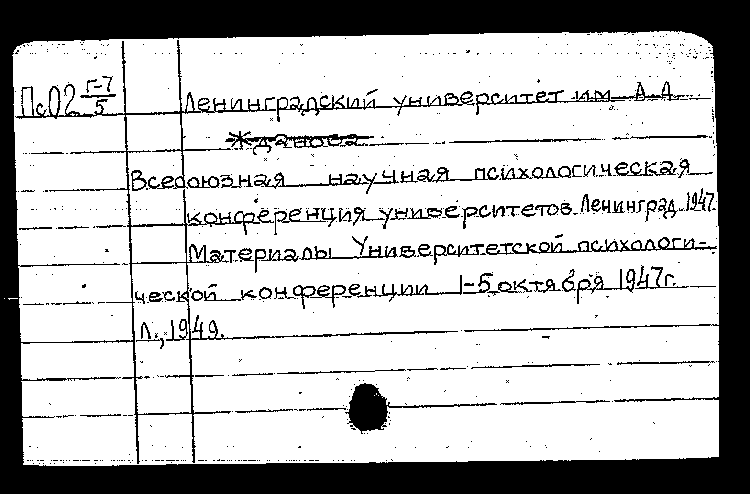 Пс02 Г-7/5 Ленинградский университет им А.А
Жданова
Всесоюзная научная психологическая
конференция университетов. Ленинград. 1947.
Материалы Университетской психологи-
ческой конференции 1-5 октября 1947г.
Л., 1949.